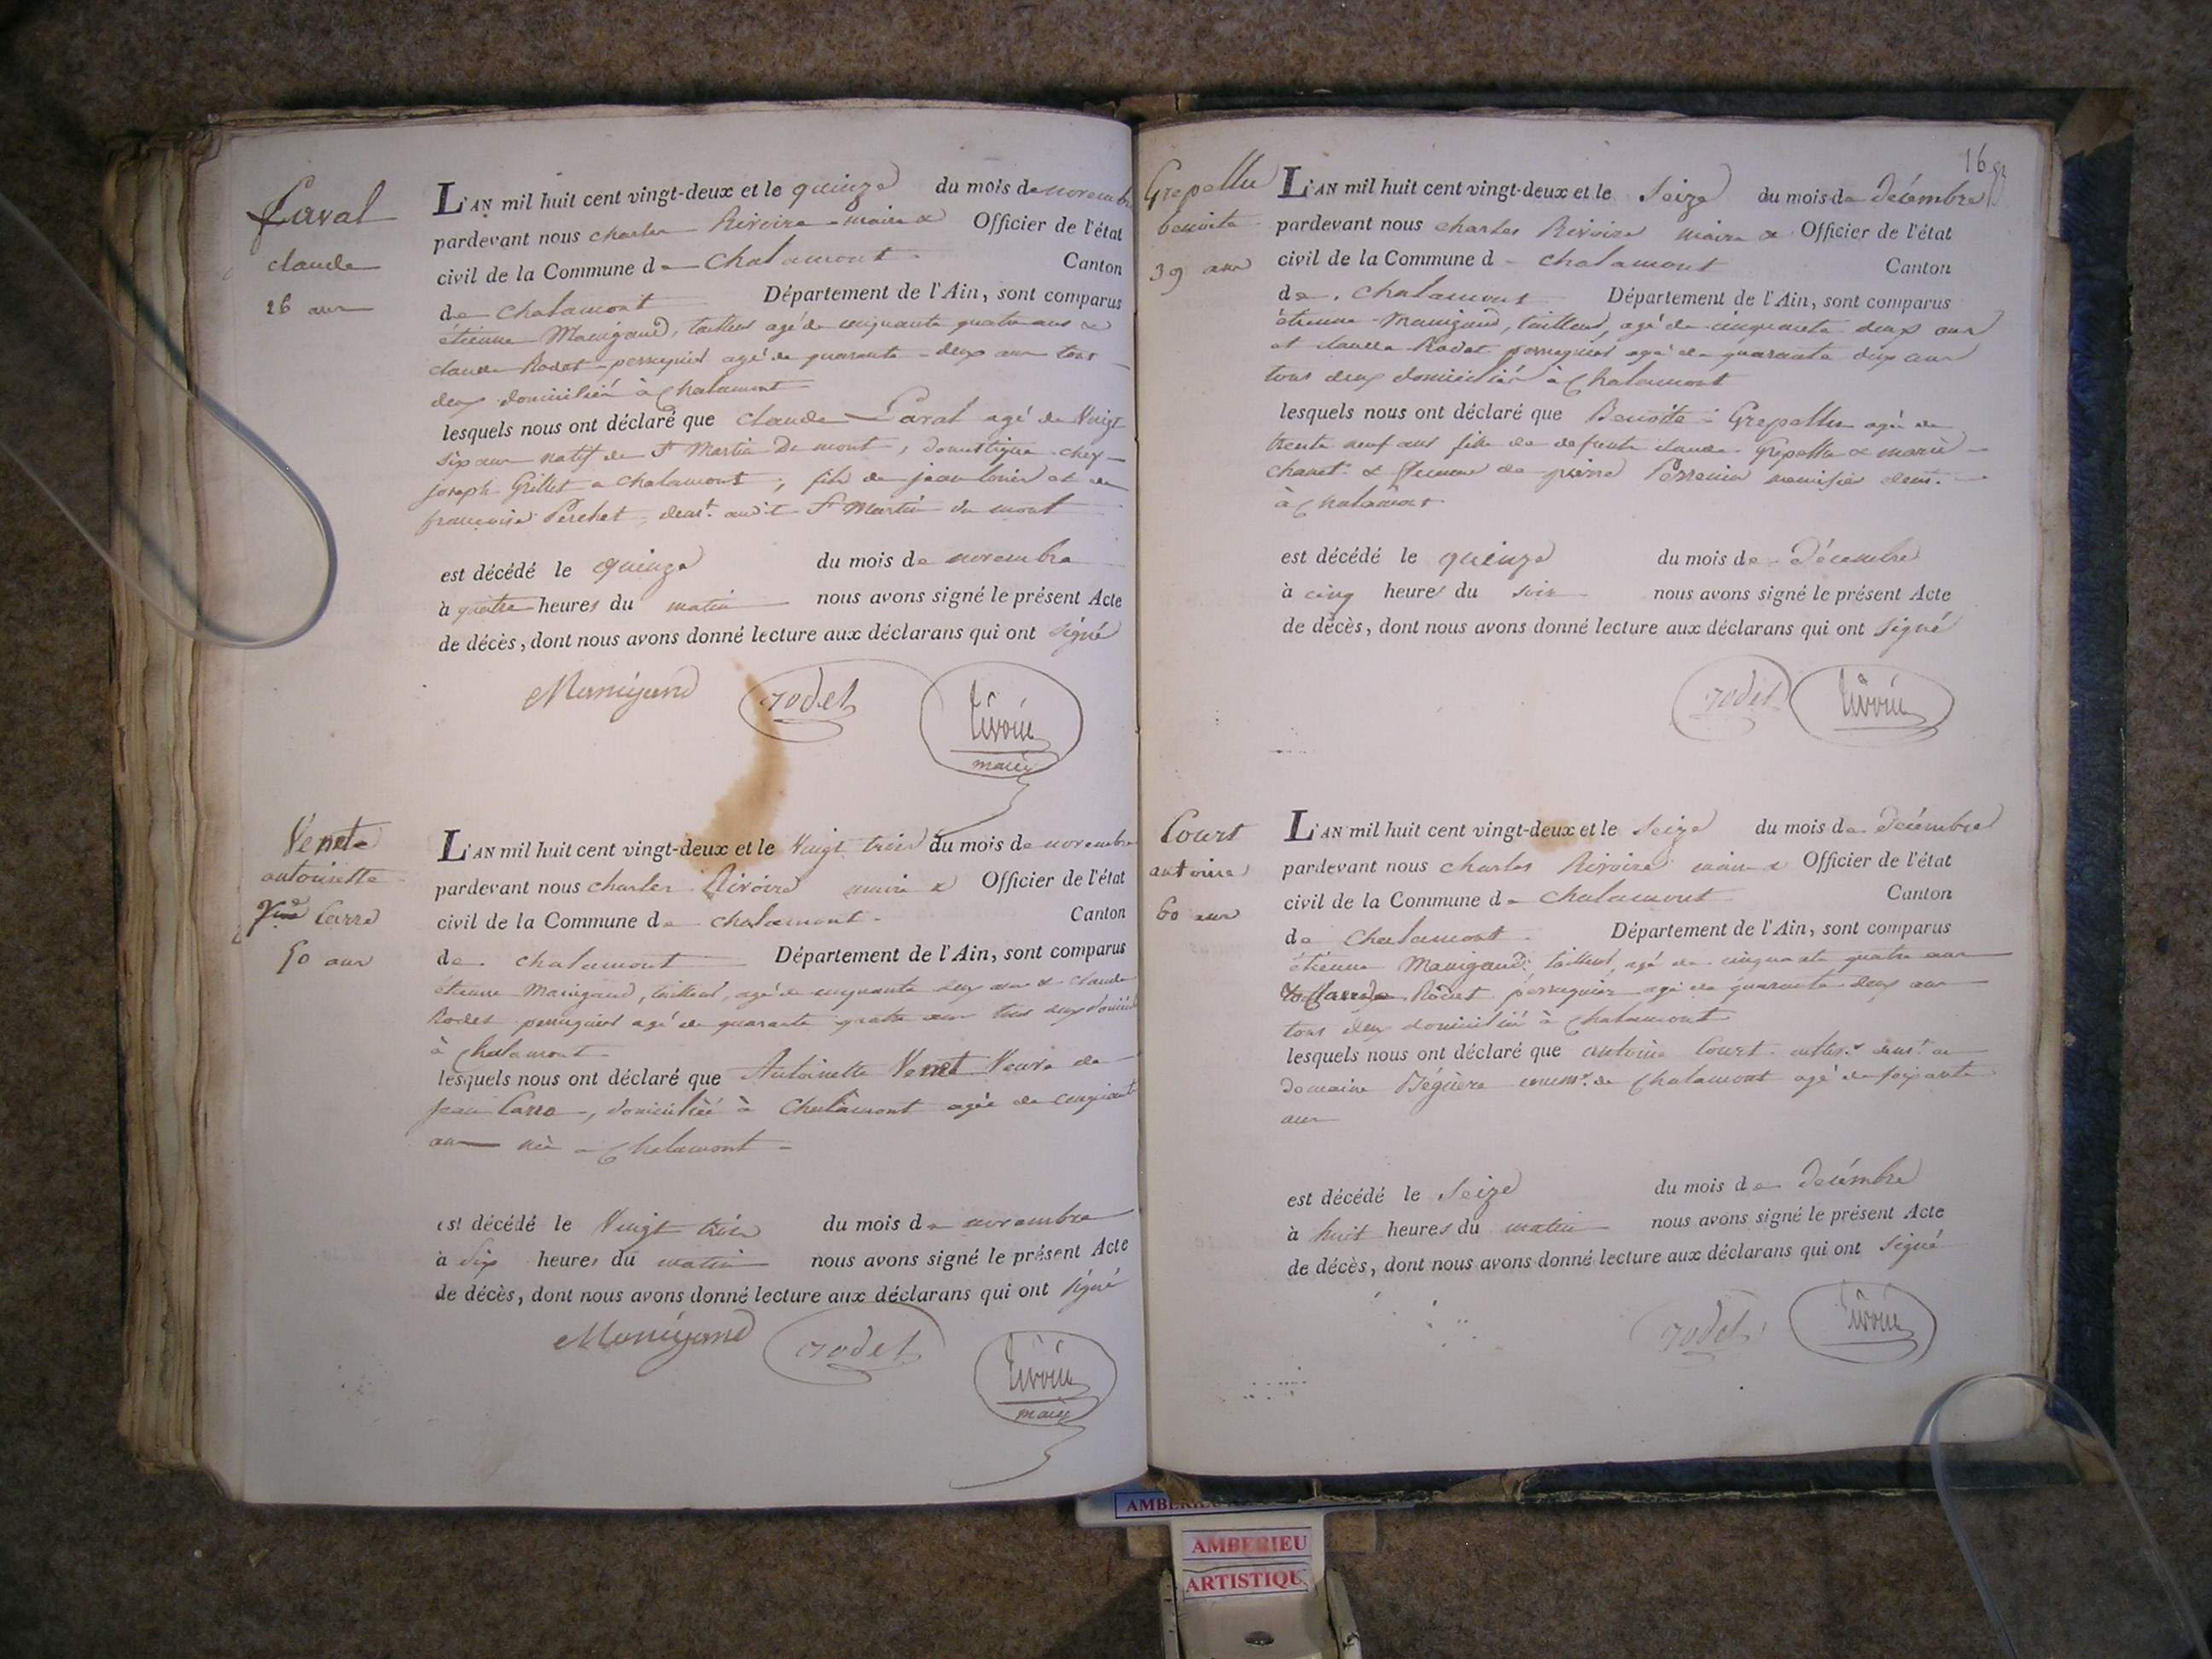 Laval
claude
26 ans
L'AN mil huit cent vingt-deux et le quinze du mois de novembre
pardevant nous charles Rivoire maire & Officier de l'état
civil de la Commune de Chalamont Canton
de Chalamont Département de l'Ain, sont comparus
étienne Manigand, tailleur agé de cinquante quatre ans &
claude Rodet perruquier agé de quarante deux ans tous
deux domicilié à Chalamont
lesquels nous ont déclaré que claude Laval agé de Vingt
six ans natif de St Martin du mont, domestique chez
joseph Grillet a Chalamont, fils de jean louis et de
françoise Perchet, demt. audit St Martin du mont
est décédé le quinze du mois de novembre
à quatre heures du matin nous avons signé le présent Acte
de décès, dont nous avons donné lecture aux déclarans qui ont signé
Manigand rodet rivoire
maire
Venet
antoinette
Vve Carre
50 ans
L'AN mil huit cent vingt-deux et le Vingt trois du mois de novembre
pardevant nous charles Rivoire maire & Officier de l'état
civil de la Commune de chalamont Canton
de chalamont Département de l'Ain, sont comparus
étienne Manigand, tailleur, agé de cinquante deux ans & claude
Rodet perruquier agé de quarante quatre ans tous deux domicilié
à Chalamont
lesquels nous ont déclaré que Antoinette Venet Veuve de
jean Carre, domiciliée à Chalamont agée de cinquante
ans née a Chalamont
est décédé le Vingt trois du mois de novembre
à dix heures du matin nous avons signé le présent Acte
de décès, dont nous avons donné lecture aux déclarans qui ont signé
Manigand rodet rivoire
maire
16
Grepellu
benoite
39 ans
L'AN mil huit cent vingt-deux et le Seize du mois de décembre
pardevant nous charles Rivoire maire & Officier de l'état
civil de la Commune d chalamont Canton
de Chalamont Département de l'Ain, sont comparus
étienne Manigand, tailleur, agé de cinquante deux ans
et claude Rodet perruquier agé de quarante deux ans
tous deux domicilié à Chalamont
lesquels nous ont déclaré que Benoite Grepellu agée de
trente neuf ans fille de defunts claude Grepellu & marie
chanet & femme de pierre Perrenin menuisier demt.
à Chalamont
est décédé le quinze du mois de décembre
à cinq heures du soir nous avons signé le présent Acte
de décès, dont nous avons donné lecture aux déclarans qui ont signé
rodet rivoire
Court
antoine
60 ans
L'AN mil huit cent vingt-deux et le Seize du mois de décembre
pardevant nous charles Rivoire maire & Officier de l'état
civil de la Commune de Chalamont Canton
de Chalamont Département de l'Ain, sont comparus
étienne Manigand tailleur, agé de cinquante quatre ans
& Claude Rodet perruquier agé de quarante deux ans
tous deux domicilié à Chalamont
lesquels nous ont déclaré que antoine Court cultivr demt. au
domaine Béguere commne. de Chalamont agé de soixante
ans
est décédé le Seize du mois de décembre
à huit heures du matin nous avons signé le présent Acte
de décès, dont nous avons donné lecture aux déclarans qui ont signé
rodet rivoire
AMBERIEU
ARTISTIQU